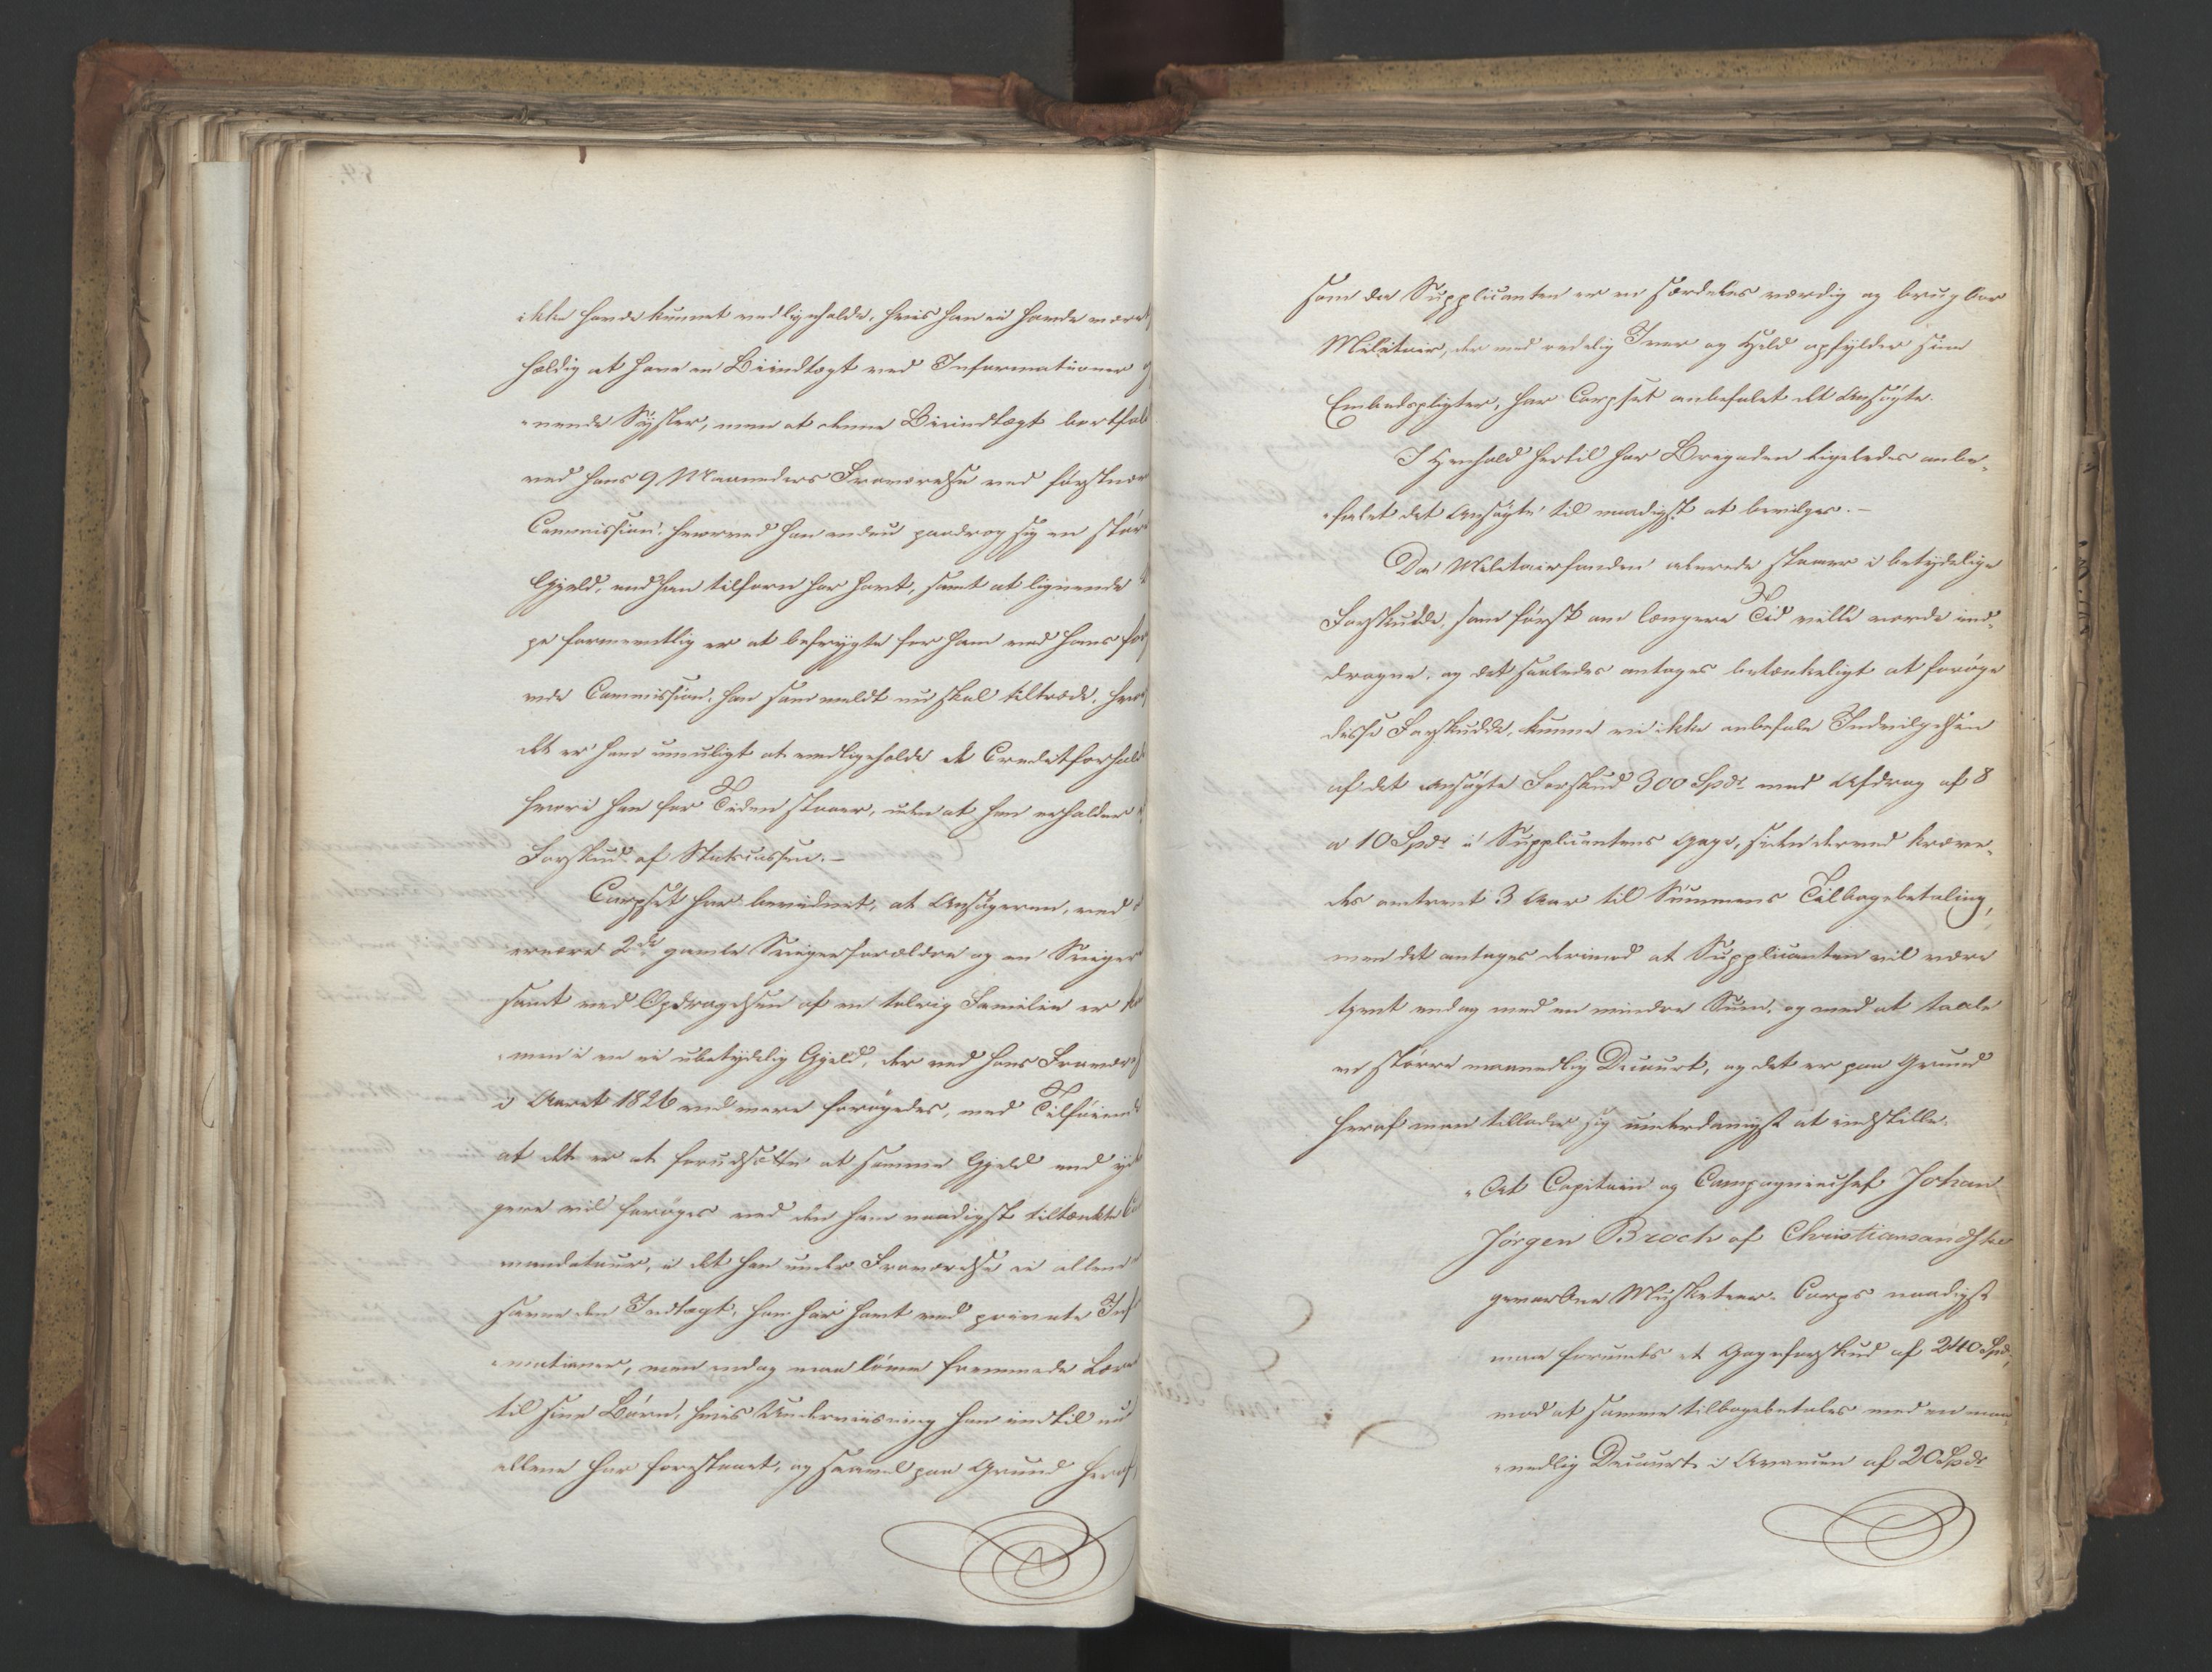 ikke havde kunnet vedligeholde, hvis han ei havde været
heldig at have en Biindtægt ved Informationer
nende Sysler, men at denne Biindtægt bortfaldt
ved hans 9 Maaneders Fraværelse ved førstnæv
Commission, hvorved han endnu paadrog sig en stør
Gjeld, end han tilforn har havt, samt at lignende
pe formeentlig er at befrygte for ham ved hans for
nede Commission, han som meldt nu skal tiltræde, hvor
det er ham umuligt at vedligeholde det Creditforhold
hvori han for Tiden staaer, uden at han erholder
Forskud af Statscassen.–
Corpset har bevidnet, at Ansøgeren, ved
ernære 2de gamle Svigerforældre og en Sviger
samt ved Opdragelsen af en talrig Familie er
men i en ei ubetydelig Gjeld, der ved hans Fravær
i Aaret 1826 end mere forøgedes, med Tilføiende
at det er at forudsætte at samme Gjeld end yd
gere vil forøges ved den ham naadigst tiltænkte Co
mandatuur, i det han under Fraværelse ei allene
savne den Indtægt, han har havt ved private Inf
mationer, men endog maa lønne fremmede Lære
til sine Børn, hvis Underviisning han indtil nu
allene har forestaaet, og saavel paa Grund heraf,
som da Supplicanten er en særdeles værdig og brugbar
Militair, der med redelig Iver og Held opfylder sine
Embedspligter, har Corpset anbefalet det Ansøgte.
I Henhold hertil har Brigaden ligeledes anbe-
falet det Ansøgte til naadigst at bevilges.–
Da Militairfonden allerede staaer i betydelige
Forskudde, som først om længere Tid ville vorde ind-
dragne, og det saaledes antages betænkeligt at forøge
disse Forskudde, kunne vi ikke anbefale Indvilgelsen
af det ansøgte Forskud 300 Spdr med Afdrag af 8
a 10 Spdr i Supplicantens Gage, siden derved kræve-
des omtrent 3 Aar til Summens Tilbagebetaling,
men det antages derimod at Supplicanten vil være
tjent endog med en mindre Sum, og med at taale
en større maanedlig Decourt, og det er paa Grund
heraf man tillader sig underdanigst at indstille:
"At Capitain og Compagniechef Johan
Jörgen Broch af Christiansandske
gevorbne Musketeer-Corps naadigst
maa forundes et Gageforskud af 240 Spdr,
mod at samme tilbagebetales med en maa-
nedlig Decourt i Avancen af 20 Spdr